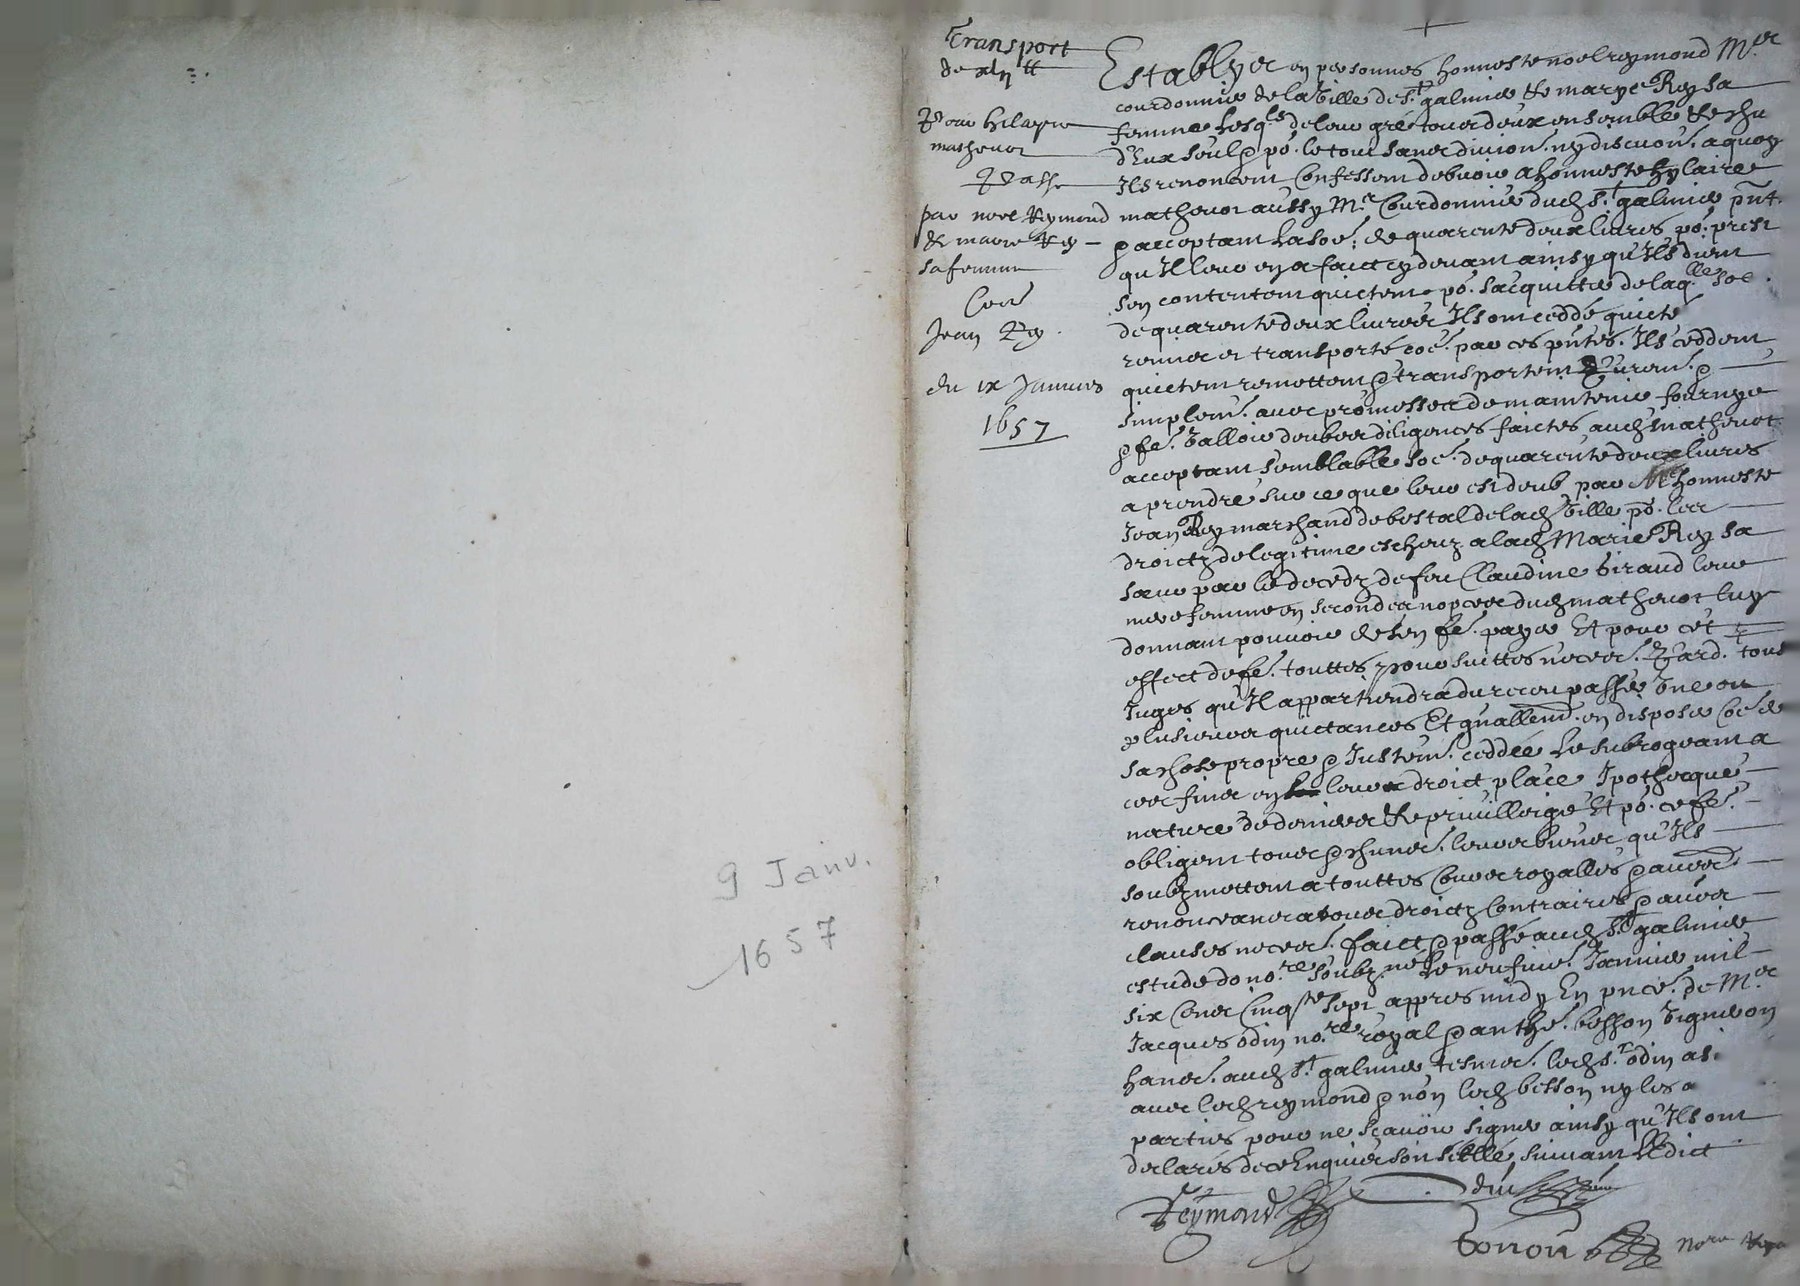 9 Janv.
1657
Transport
de xlij tt
Pour hilayre
mathevot
Passé
par noel Reymond
& marie Rey
sa femme
Cont.
Jean Rey
du ix Janvier
1657
Establys en personnes honneste noel reymond Mre
courdonnier de la ville de st galmier & marye Rey sa
femme lesqls de leur gré tous deux ensemble & chun
d'Eux seul & po. le tout sans division ny discution. a quoy
Ils renoncent Confessent debvoir a honneste hylaire
mathevot aussy Mre Courdonnier dud st galmier pnt
& acceptant la soe. de quarente deux livres po. prest
qu'Il leur en a faict cy devant ainsy qu'Ils dient
sen contentent quictent po. sacquitter de laqlle soe.
de quarente deux livres Ils ont ceddé quicté
remis et transporté coe. par ces pntes. Ils ceddent
quictent remettent & transportent purem. &
simplem. avec promesses de maintenir fournyr
& fe. valloir doubves diligences faictes aud mathevot
acceptant semblable soe. de quarente deux livres
a prendre sur ce que leur est deub par honneste
Jean Rey marchand de bestal de lad ville po. les
droictz de legitime escheuz a lad Marie Rey sa
sœur par le decedz de feu Claudine Giraud leur
mere femme en secondes nopces dud mathevot luy
donnant pouvoir de sen fe. payer Et pour cet
effect de fe. touttes poursuittes necess. Pard. tous
Juges qu'Il appartiendra du receu passer Une ou
plusieurs quictances Et quallem. en disposer coe. de
sa chose propre & Justem. ceddée le subrogeant a
ces fins en leurs droict place Ipothecque
nature de deniers & privilleige Et po. ce fe.
obligent tous & chuns. leurs biens qu'Ils
soubzmettent a touttes Cours royalles & aures
renonceans a tous droictz Contraires & aures
clauses necess. faict & passé aud st galmier
estude do nore soubzne le neufvie. Janvier mil
six Cens Cinqte sept appres midy En pnce. de Mre
Jacques odin nore royal & anthe. besson vigneron
hans. aud st galmier tesmes. led sr odin a s.
avec led reymond & non led besson ny les a
parties pour ne sçavoir signer ainsy qu'Ils ont
declarés de ce Enquis son séellé suivant lEdict
Reymond
odin
Bonon nore Royal